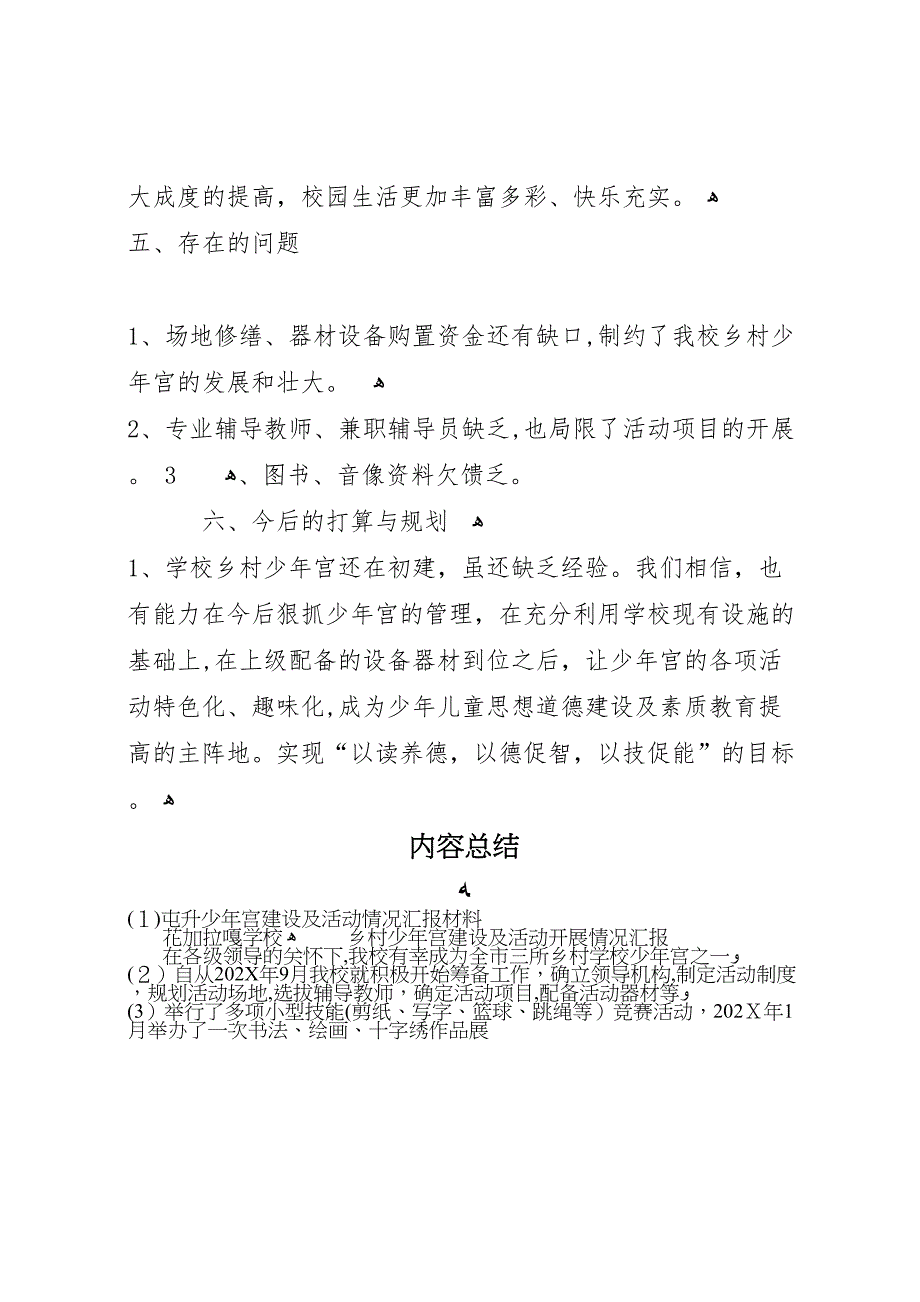 大成度的提高，校园生活更加丰富多彩、快乐充实。 ﻫ
五、存在的问题
1、场地修缮、器材设备购置资金还有缺口,制约了我校乡村少
年宫的发展和壮大。 ﻫ
2、专业辅导教师、兼职辅导员缺乏,也局限了活动项目的开展
。 3 ﻫ、图书、音像资料欠馈乏。
六、今后的打算与规划 ﻫ
1、学校乡村少年宫还在初建，虽还缺乏经验。我们相信，也
有能力在今后狠抓少年宫的管理，在充分利用学校现有设施的
基础上,在上级配备的设备器材到位之后，让少年宫的各项活
动特色化、趣味化,成为少年儿童思想道德建设及素质教育提
高的主阵地。实现“以读养德，以德促智，以技促能”的目标
。 ﻫ
内容总结
ﻪ
(１)屯升少年宫建设及活动情况汇报材料
花加拉嘎学校ﻫ 乡村少年宫建设及活动开展情况汇报
在各级领导的关怀下,我校有幸成为全市三所乡村学校少年宫之一ﻭ
(２）自从202X年9月我校就积极开始筹备工作，确立领导机构,制定活动制度
，规划活动场地,选拔辅导教师，确定活动项目,配备活动器材等ﻭ
(3）举行了多项小型技能(剪纸、写字、篮球、跳绳等）竞赛活动，202Ｘ年1
月举办了一次书法、绘画、十字绣作品展